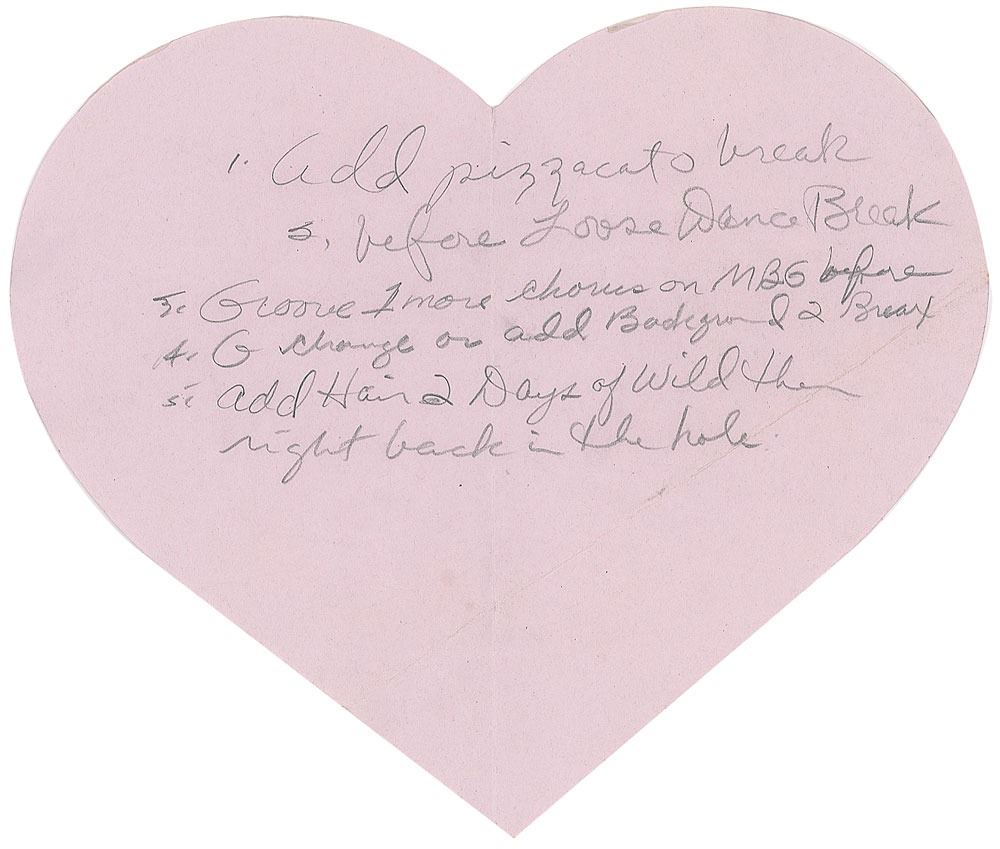 1. Add pizzacato break
2. before Loose Dance Break
3. Groove 1 more chorus on MBG before
4. G change or add Background 2 Break
5. Add Hair 2 Days of Wild then
right back in the hole.